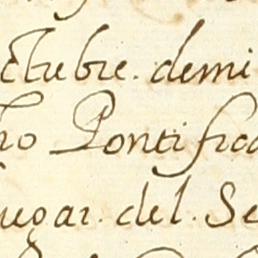 ctubre. demi
ho Pontific
lugar. del. Se